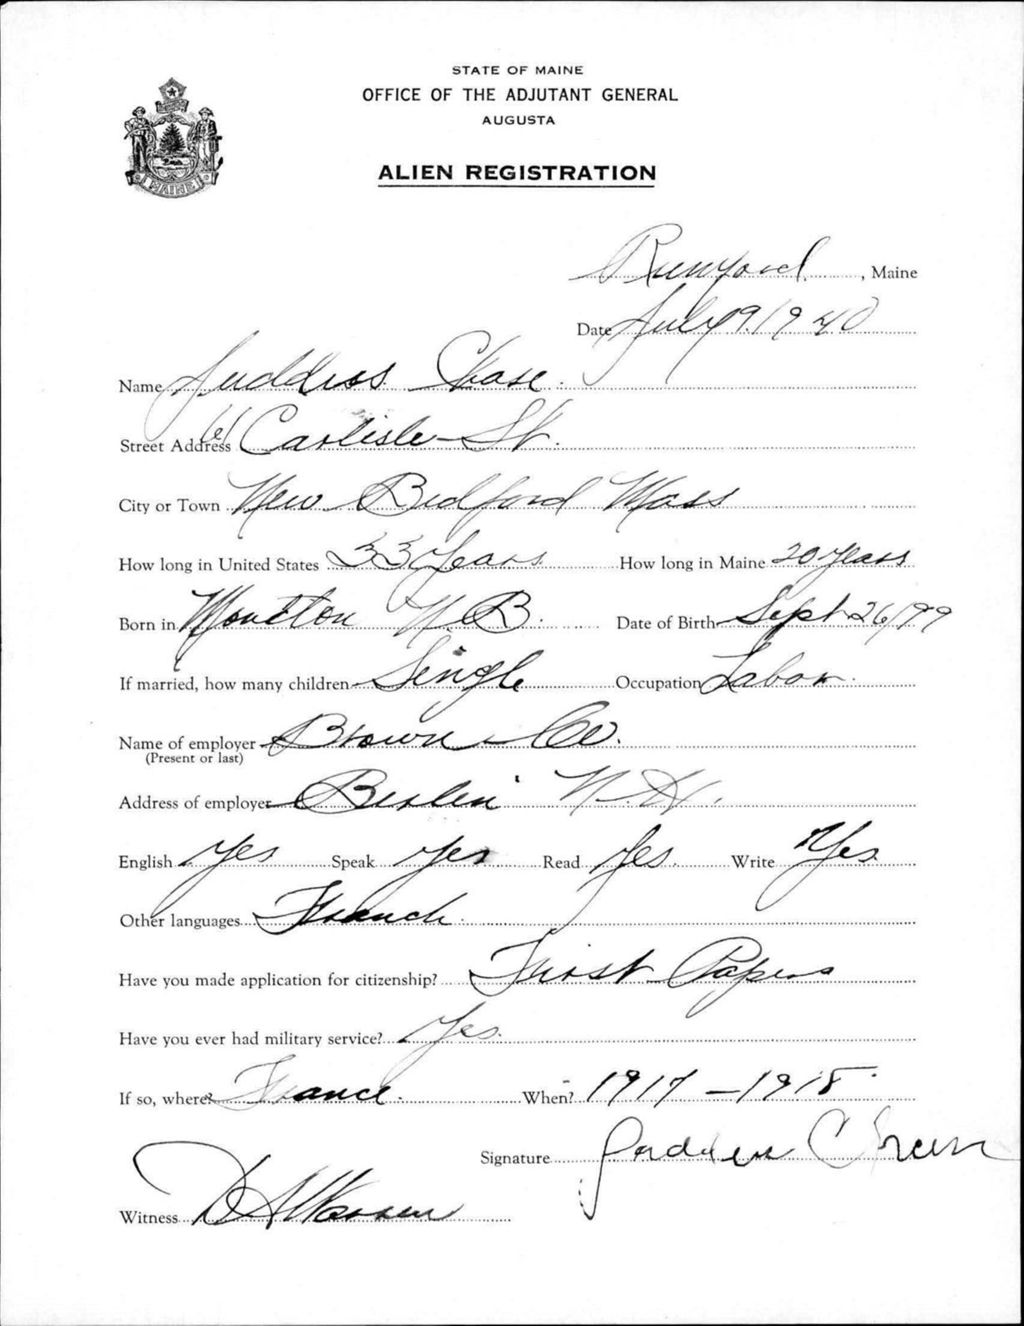 STATE OF MAINE
OFFICE OF THE ADJUTANT GENERAL
AUGUSTA
ALIEN REGISTRATION
MAINE
Rumford, Maine
Date July 9 1940
Name Chase
Street Address 61 Carlisle St.
City or Town New Bedford Mass
How long in United States 33 Years How long in Maine 20 years
Born in Moncton N.B. Date of Birth Sept 26/99
If married, how many children Single Occupation Labor
Name of employer Brown Co.
(Present or last)
Address of employer Berlin N.H.
English Yes Speak Yes Read Yes Write Yes
Other languages French
Have you made application for citizenship? First Papers
Have you ever had military service? Yes
If so, where? France. When? 1917 - 1918
Signature
Witness